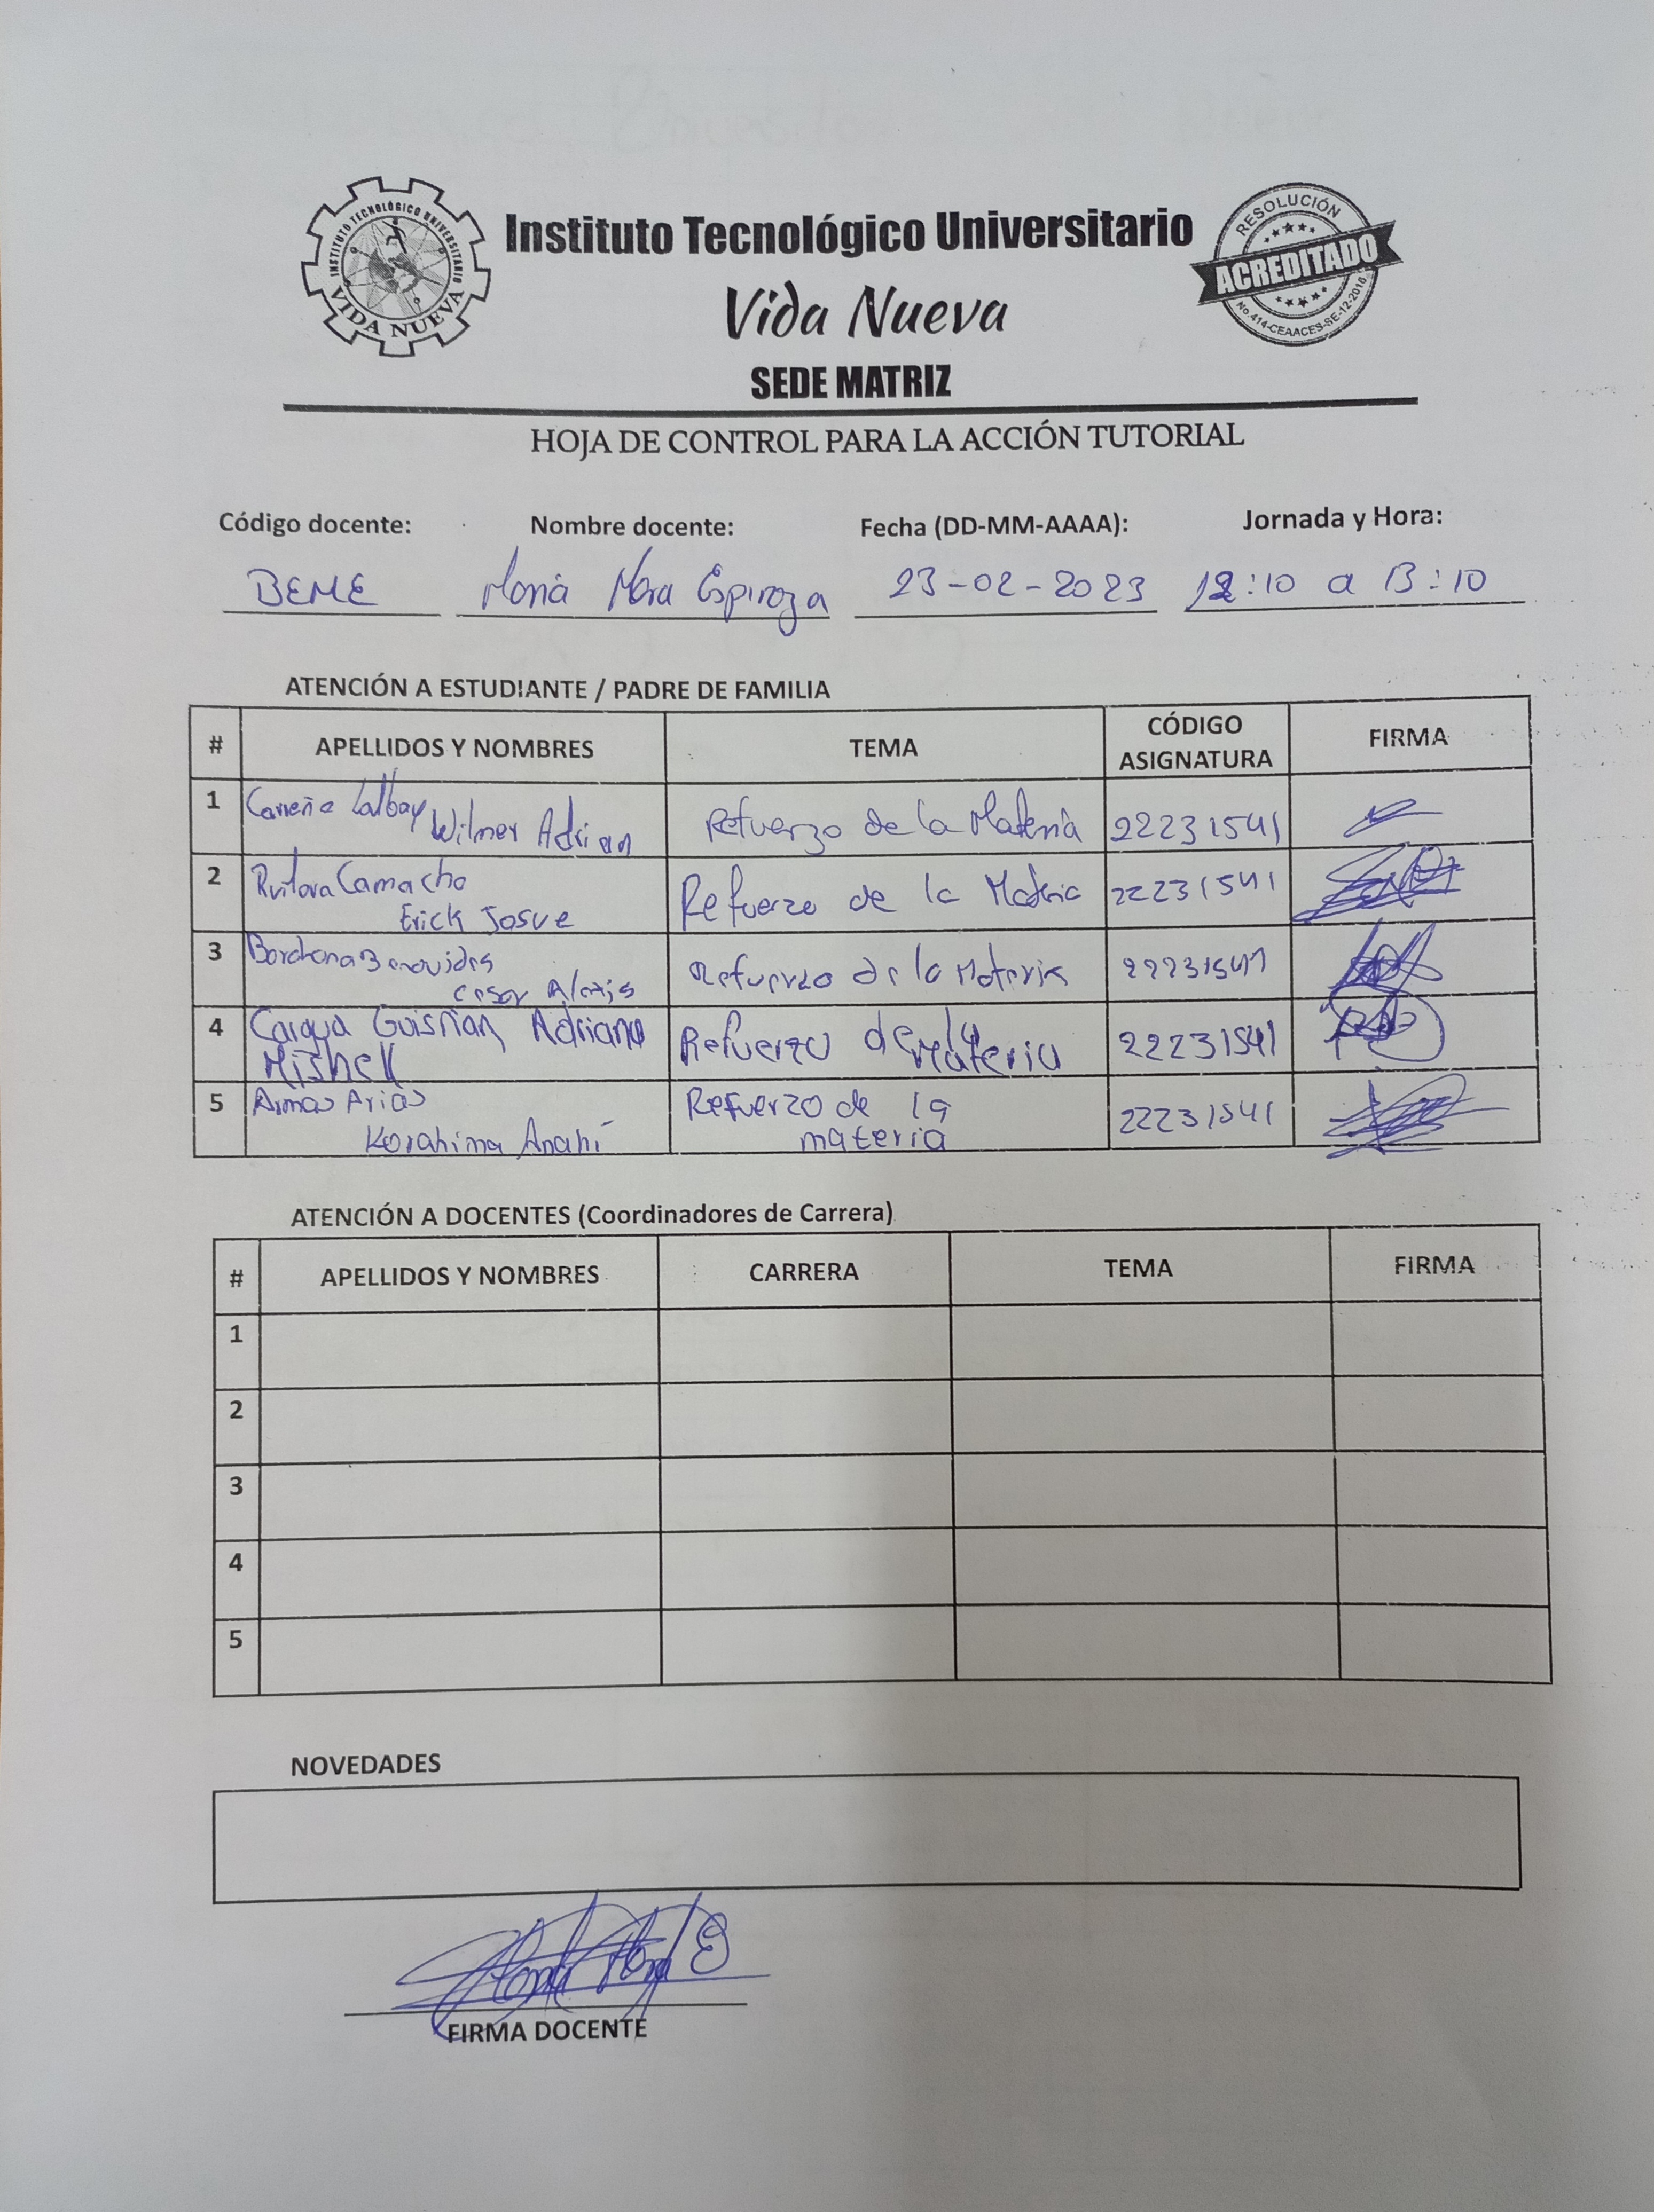 INSTITUTO TECNOLÓGICO UNIVERSITARIO
VIDA NUEVA
Instituto Tecnológico Universitario
Vida Nueva
SEDE MATRIZ
RESOLUCIÓN
ACREDITADO
No.414-CEAACES-SE-12-2016
HOJA DE CONTROL PARA LA ACCIÓN TUTORIAL
Código docente: Nombre docente: Fecha (DD-MM-AAAA): Jornada y Hora:
BEME María Mora Espinoza 23-02-2023 12:10 a 13:10
ATENCIÓN A ESTUDIANTE / PADRE DE FAMILIA
# APELLIDOS Y NOMBRES TEMA CÓDIGO ASIGNATURA FIRMA
1 Wilmer Adrian Refuerzo de la Materia 22231541
2 Camacho Erick Josue Refuerzo de la Materia 22231541
3 Cesar Alexis Refuerzo de la Materia 22231541
4 Adriana Mishell Refuerzo de la Materia 22231541
5 Armas Arias Anahí Refuerzo de la materia 22231541
ATENCIÓN A DOCENTES (Coordinadores de Carrera)
# APELLIDOS Y NOMBRES CARRERA TEMA FIRMA
1
2
3
4
5
NOVEDADES
FIRMA DOCENTE